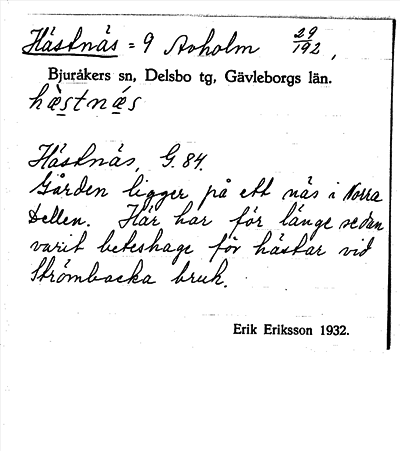 Hästnäs = 9 Avholm 29/192,
Bjuråkers sn, Delsbo tg, Gävleborgs län.
hæ̀stnǽs
Hästnäs, G. 84.
Gården ligger på ett näs i Norra
Dellen. Här har för länge sedan
varit beteshage för hästar vid
Strömbacka bruk.
Erik Eriksson 1932.